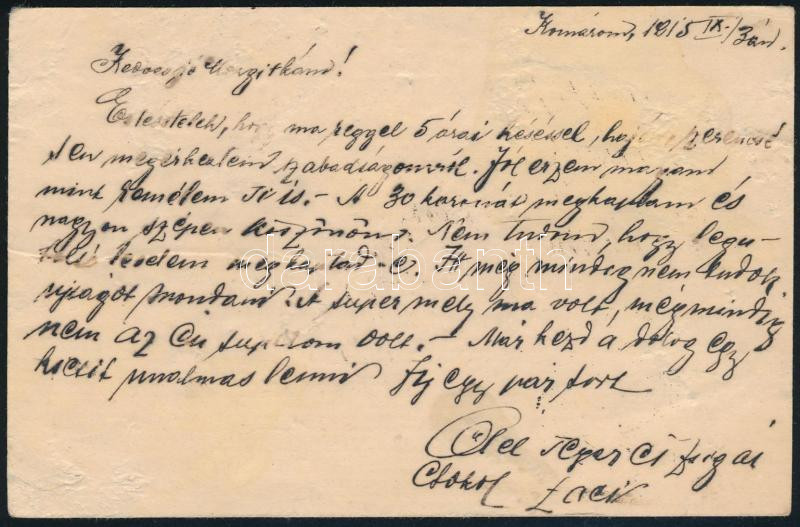 Komárom, 1915 IX./3án.
Kedves jó Margitkám!
Értesitelek, hogy ma reggel 5 órai késéssel, hajón, szerencsé
sen megérkeztem szabadságomról. Jól érzem magam
mint remélem Ti is. - A 30 koronát megkaptam és
nagyon szépen köszönöm. Nem tudom, hogy legu-
tolsó levelem megkaptad-e. Itt még mindég nem tudok
ujságot mondani. A super mely ma volt, mégmindég
nem az én superom volt. - Már kezd a dolog egy
kicsit unalmas lenni Irj egy pár sort
Ölel
Csókol Laci